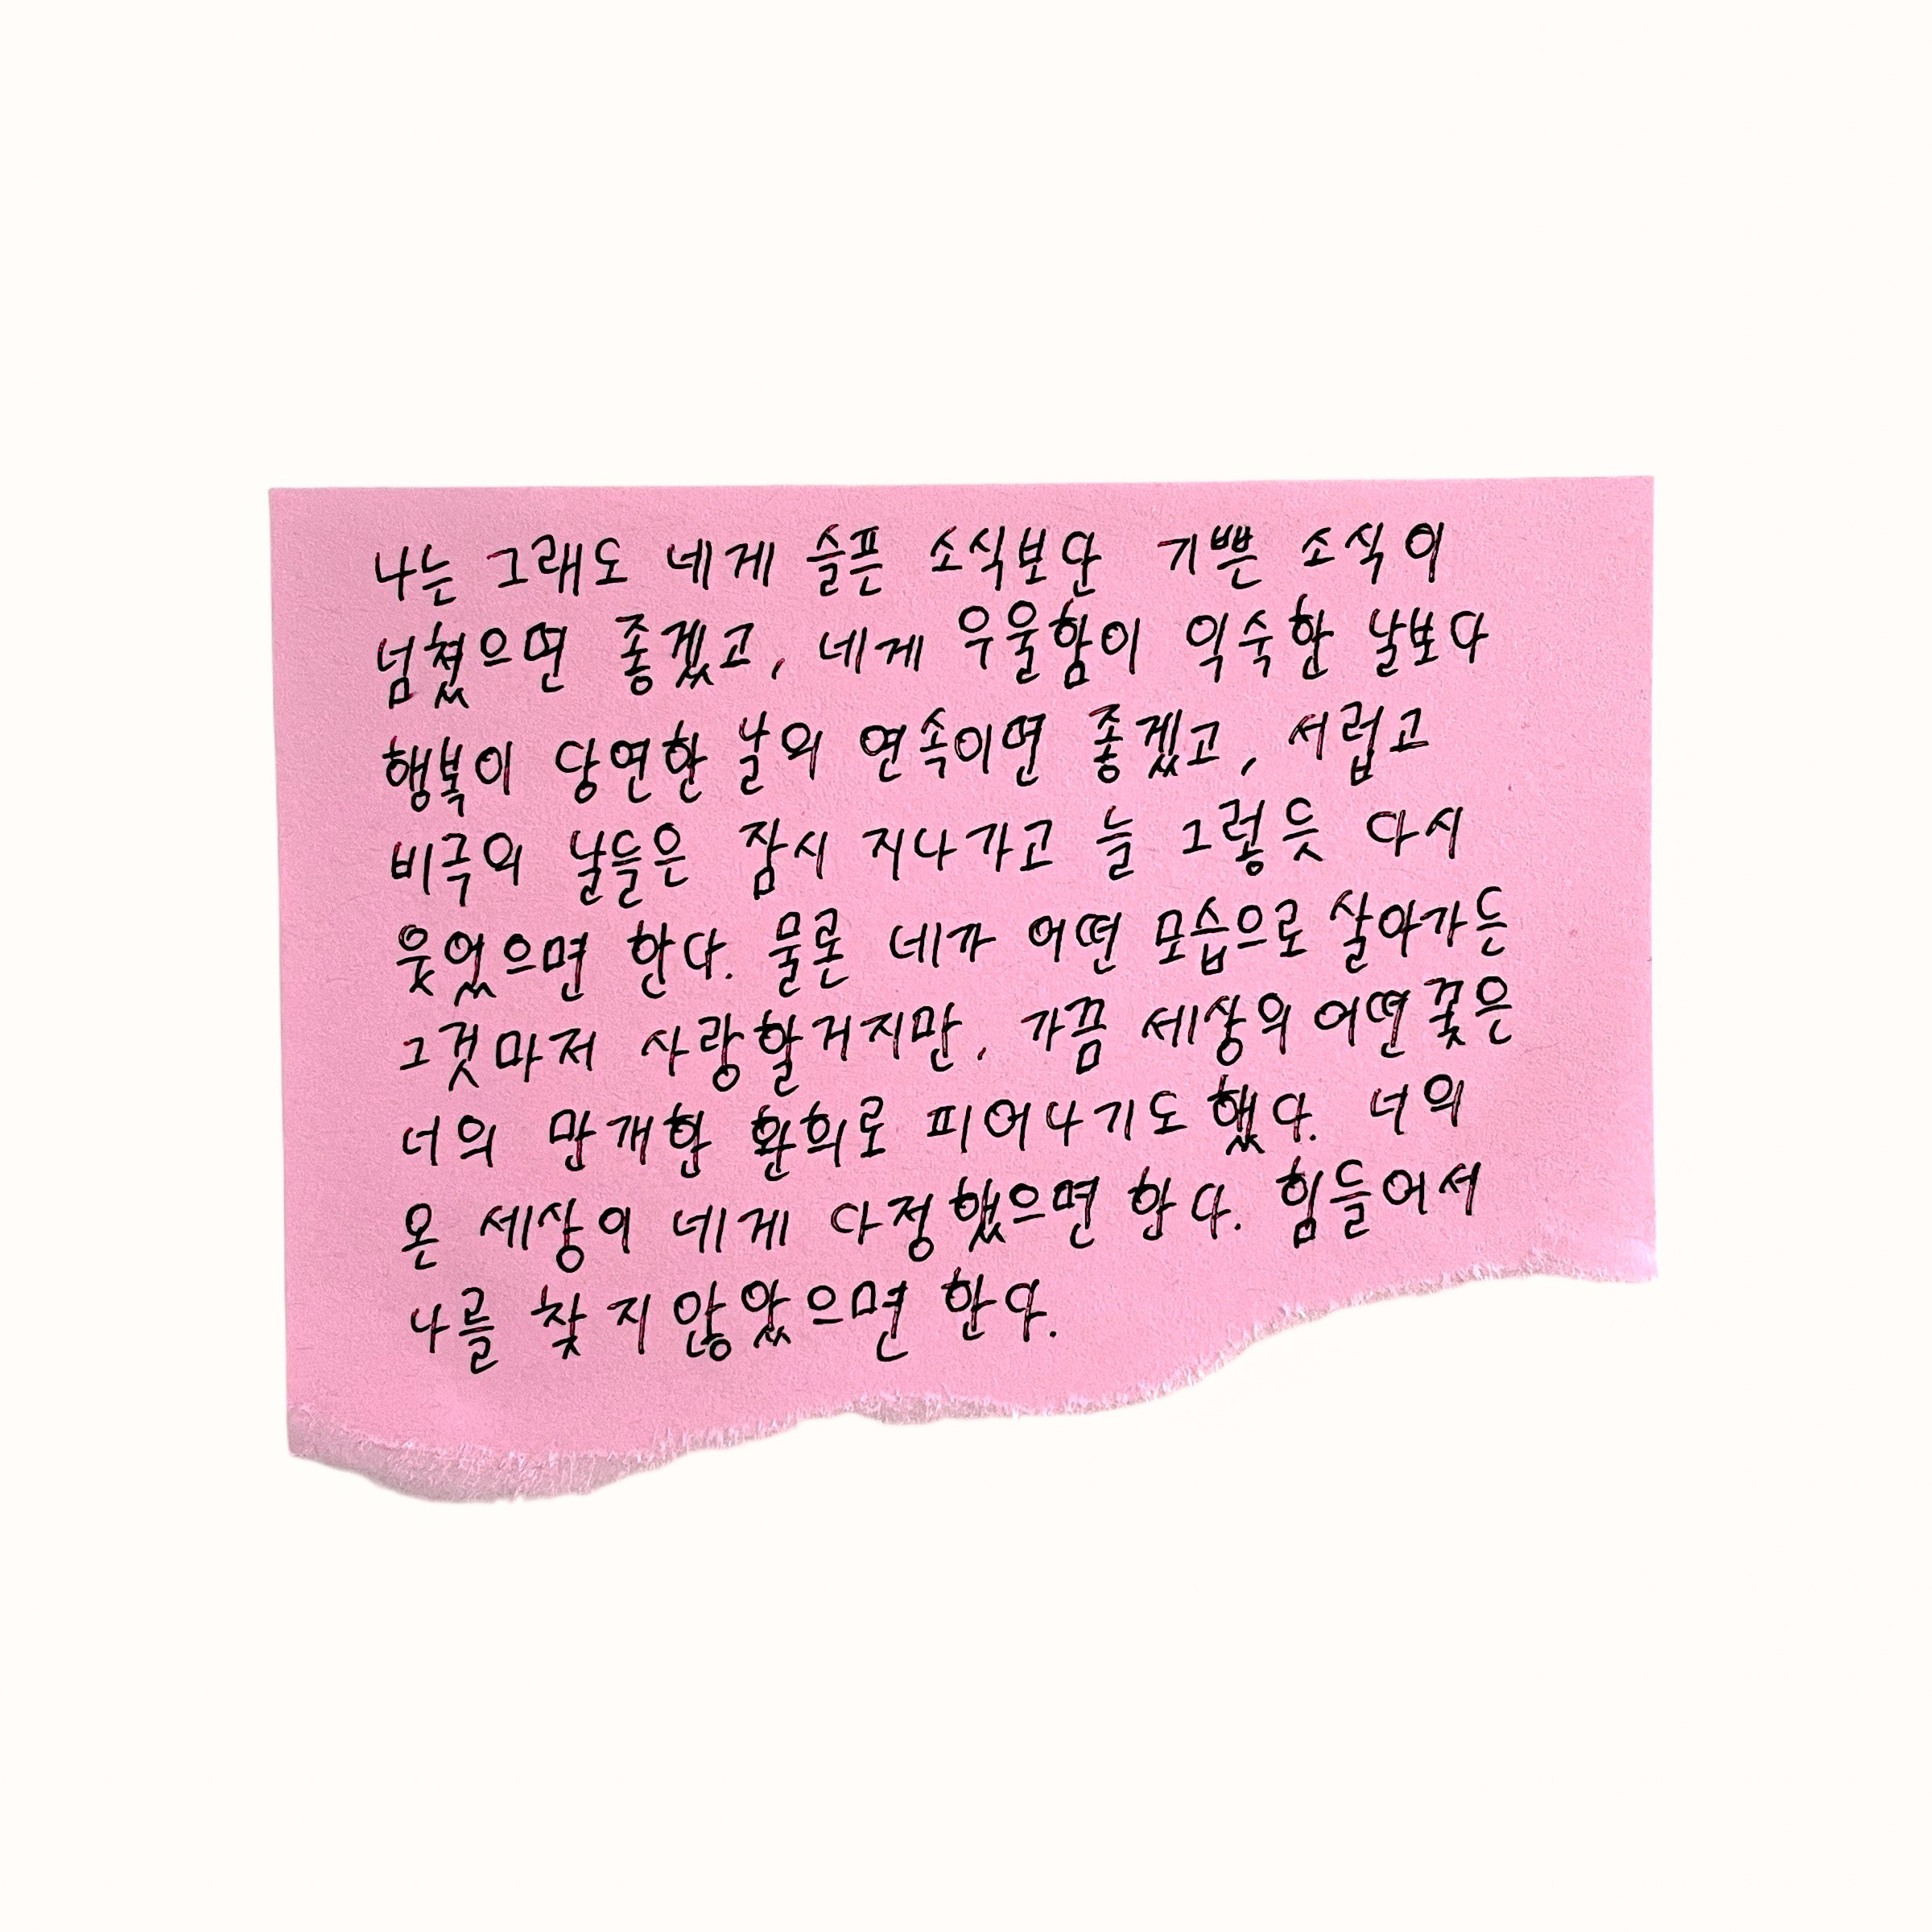 나는 그래도 네게 슬픈 소식보단 기쁜 소식이
넘쳤으면 좋겠고, 네게 우울함이 익숙한 날보다
행복이 당연한 날의 연속이면 좋겠고, 서럽고
비극의 날들은 잠시 지나가고 늘 그렇듯 다시
웃었으면 한다. 물론 네가 어떤 모습으로 살아가든
그것마저 사랑할거지만, 가끔 세상의 어떤 꽃은
너의 만개한 환희로 피어나기도 했다. 너의
온 세상이 네게 다정했으면 한다. 힘들어서
나를 찾지 않았으면 한다.